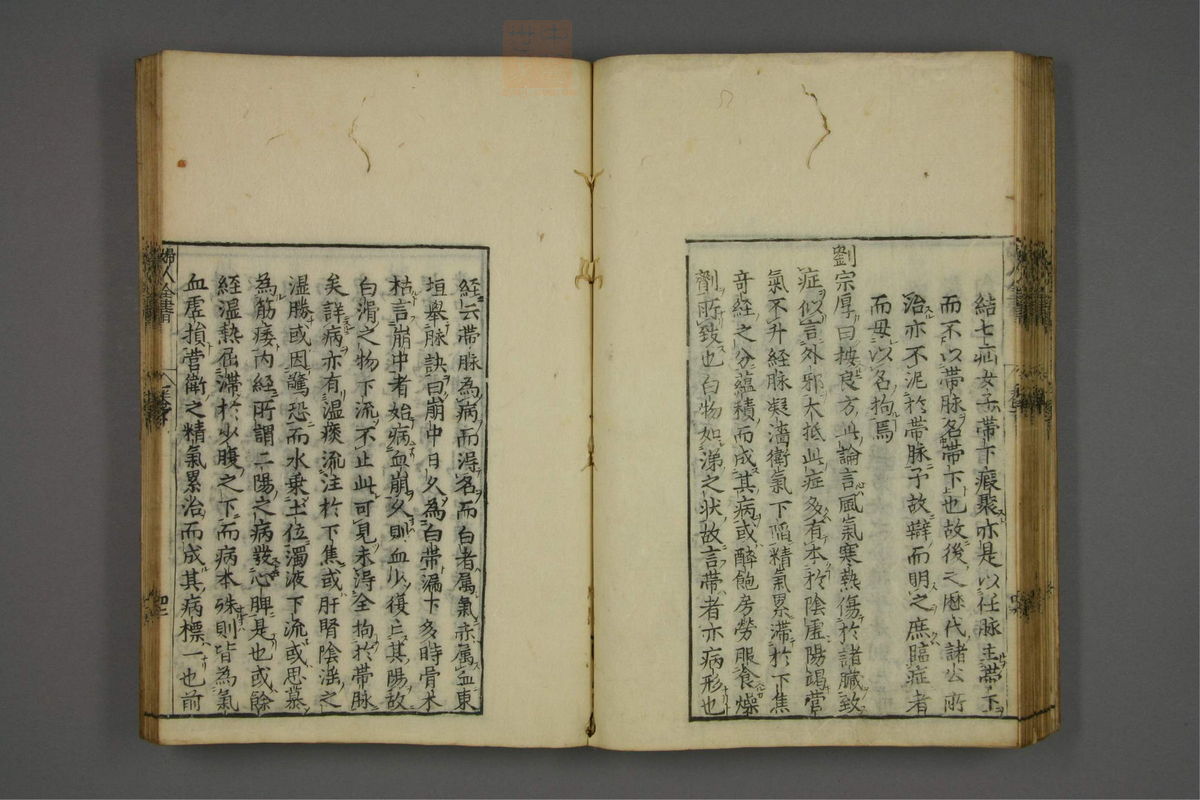 結七疝女子帶下瘕聚亦是以任脉主帶下
而不以帶脉名帶下也故後之歷代諸公所
治亦不泥於帶脉予故辯而明之庶臨症者
而毋以名拘焉
劉宗厚曰按良方此論言風氣寒熱傷於諸臟致
症似言外邪大抵此症多有本於陰虛陽竭營
氣不升経脉凝濇衛氣下陷精氣累滯於下焦
奇経之分蘊積而成其病或醉飽房勞服食燥
劑所致也白物如涕之狀故言帶者亦病形也
経云帶脉為病而得名而白者属氣赤属血東
垣舉脉訣曰崩中日久為白帶漏下多時骨木
枯言崩中者始病血崩久則血少復亡其陽故
白滑之物下流不止此可見未得全拘於帶脉
矣詳病亦有湿痰流注於下焦或肝腎陰滛之
湿勝或因驚恐而水乗土位濁液下流或思慕
為筋痿内經所謂二陽之病發心脾是也或餘
経湿熱屈滯於少腹之下而病本殊則皆為氣
血虛損營衛之精氣累治而成其病標一也前
婦人全書